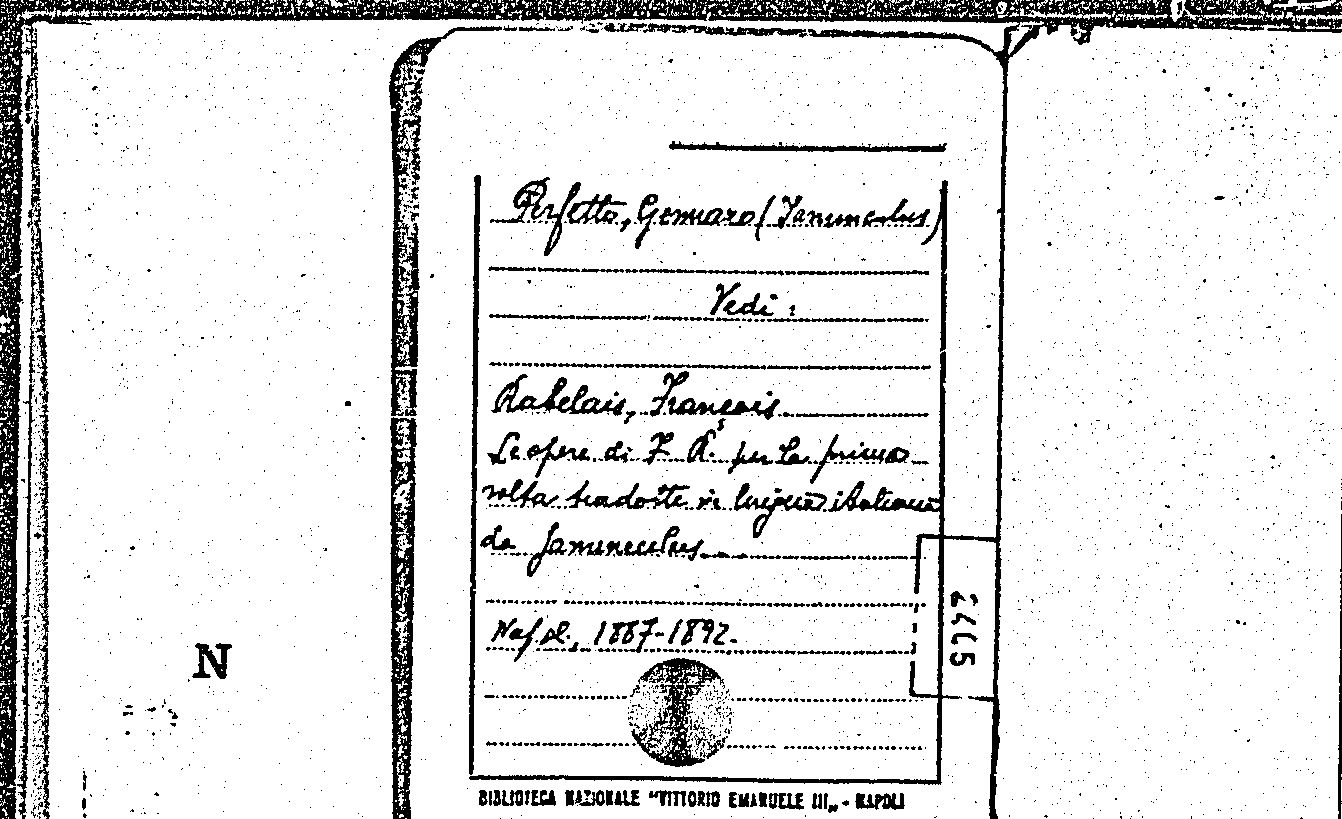 Perfetto, Gennaro (Janunculus)
Vedi:
Rabelais, François
Le opere di F. R. per la prima
volta tradotte in lingua italiana
da Janunculus
Napoli, 1887-1892.
N
BIBLIOTECA NAZIONALE "VITTORIO EMANUELE III„ - NAPOLI